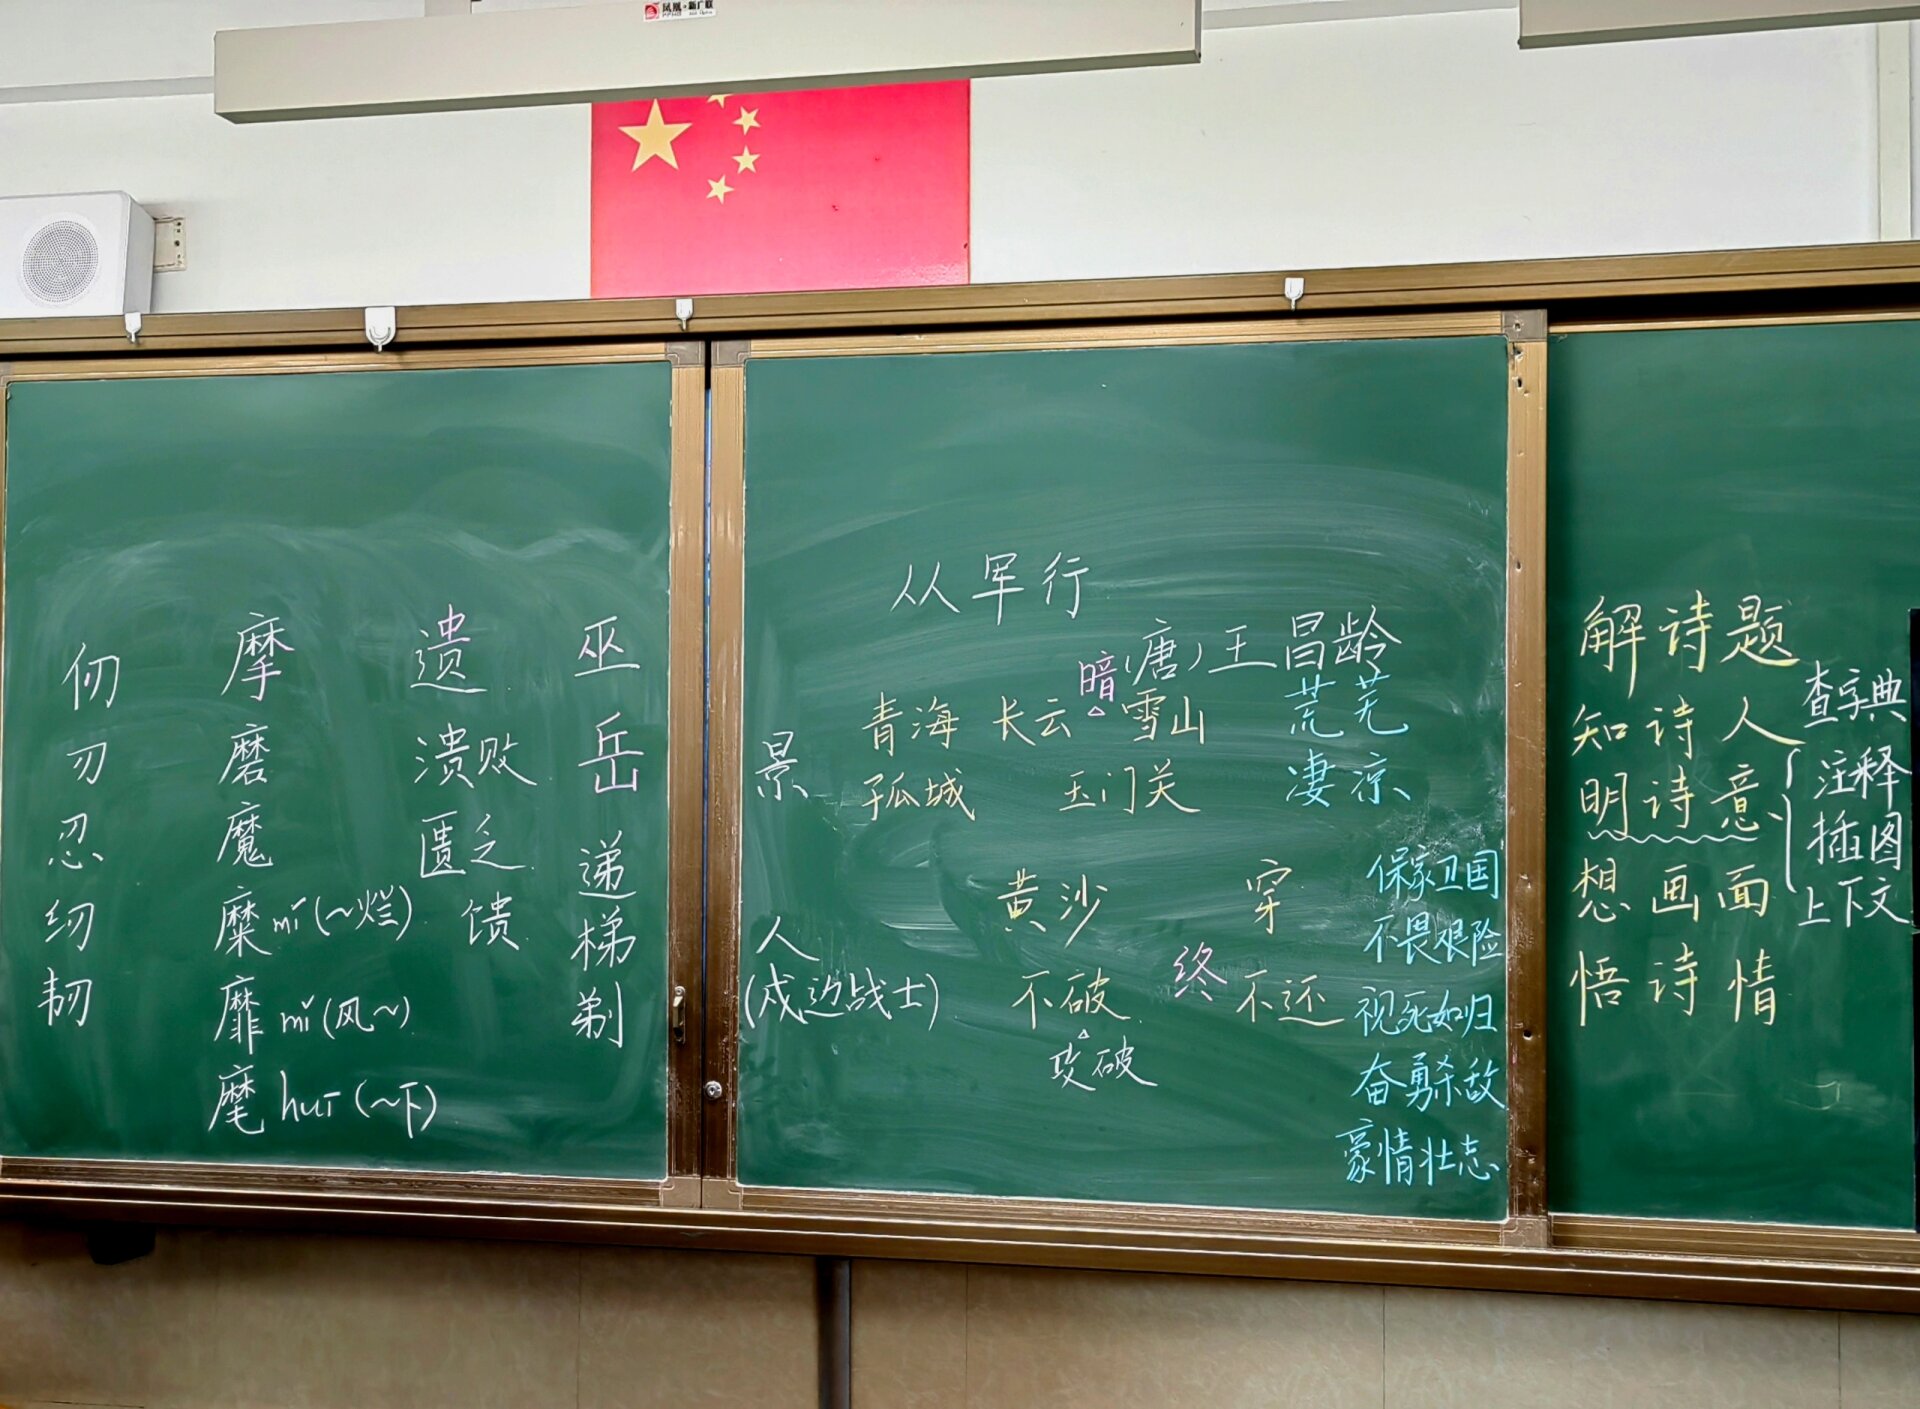 凤凰·新广联
仞 摩 遗 巫
刃 磨 溃败 岳
忍 魔 匮乏 递
纫 糜 mí(~烂) 馈 梯
韧 靡 mǐ(风~) 剃
麾 huī(~下)
从军行
(唐)王昌龄
景 青海 长云 暗 雪山 荒芜
孤城 玉门关 凄凉
人 黄沙 穿 保家卫国
不畏艰险
(戍边战士) 不破 终 不还 视死如归
攻破 奋勇杀敌
豪情壮志
解诗题
知诗人 查字典
明诗意 注释
想画面 插图
悟诗情 上下文